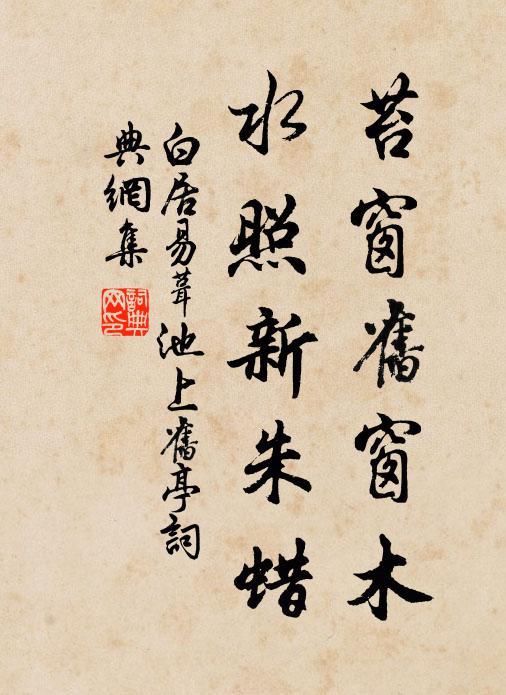 苔窗舊窗木
水照新朱蜡
白居易葺池上舊亭詞
典網集
詞典
网印